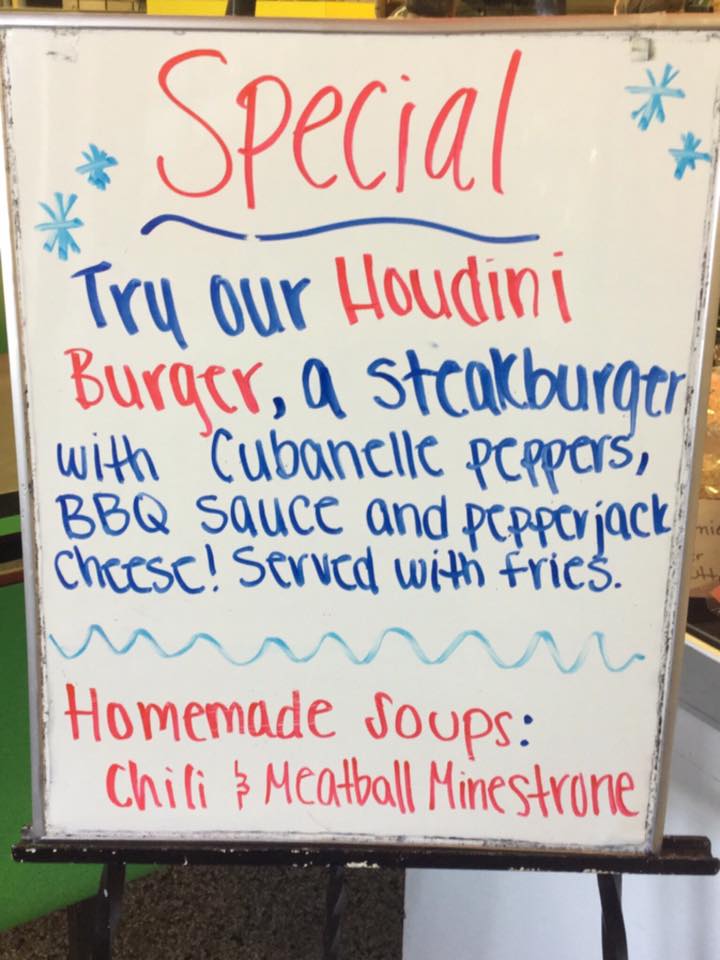 Special
Try our Houdini
Burger, a steakburger
with Cubanelle peppers,
BBQ sauce and pepperjack
cheese! Served with fries.
Homemade Soups:
Chili & Meatball Minestrone